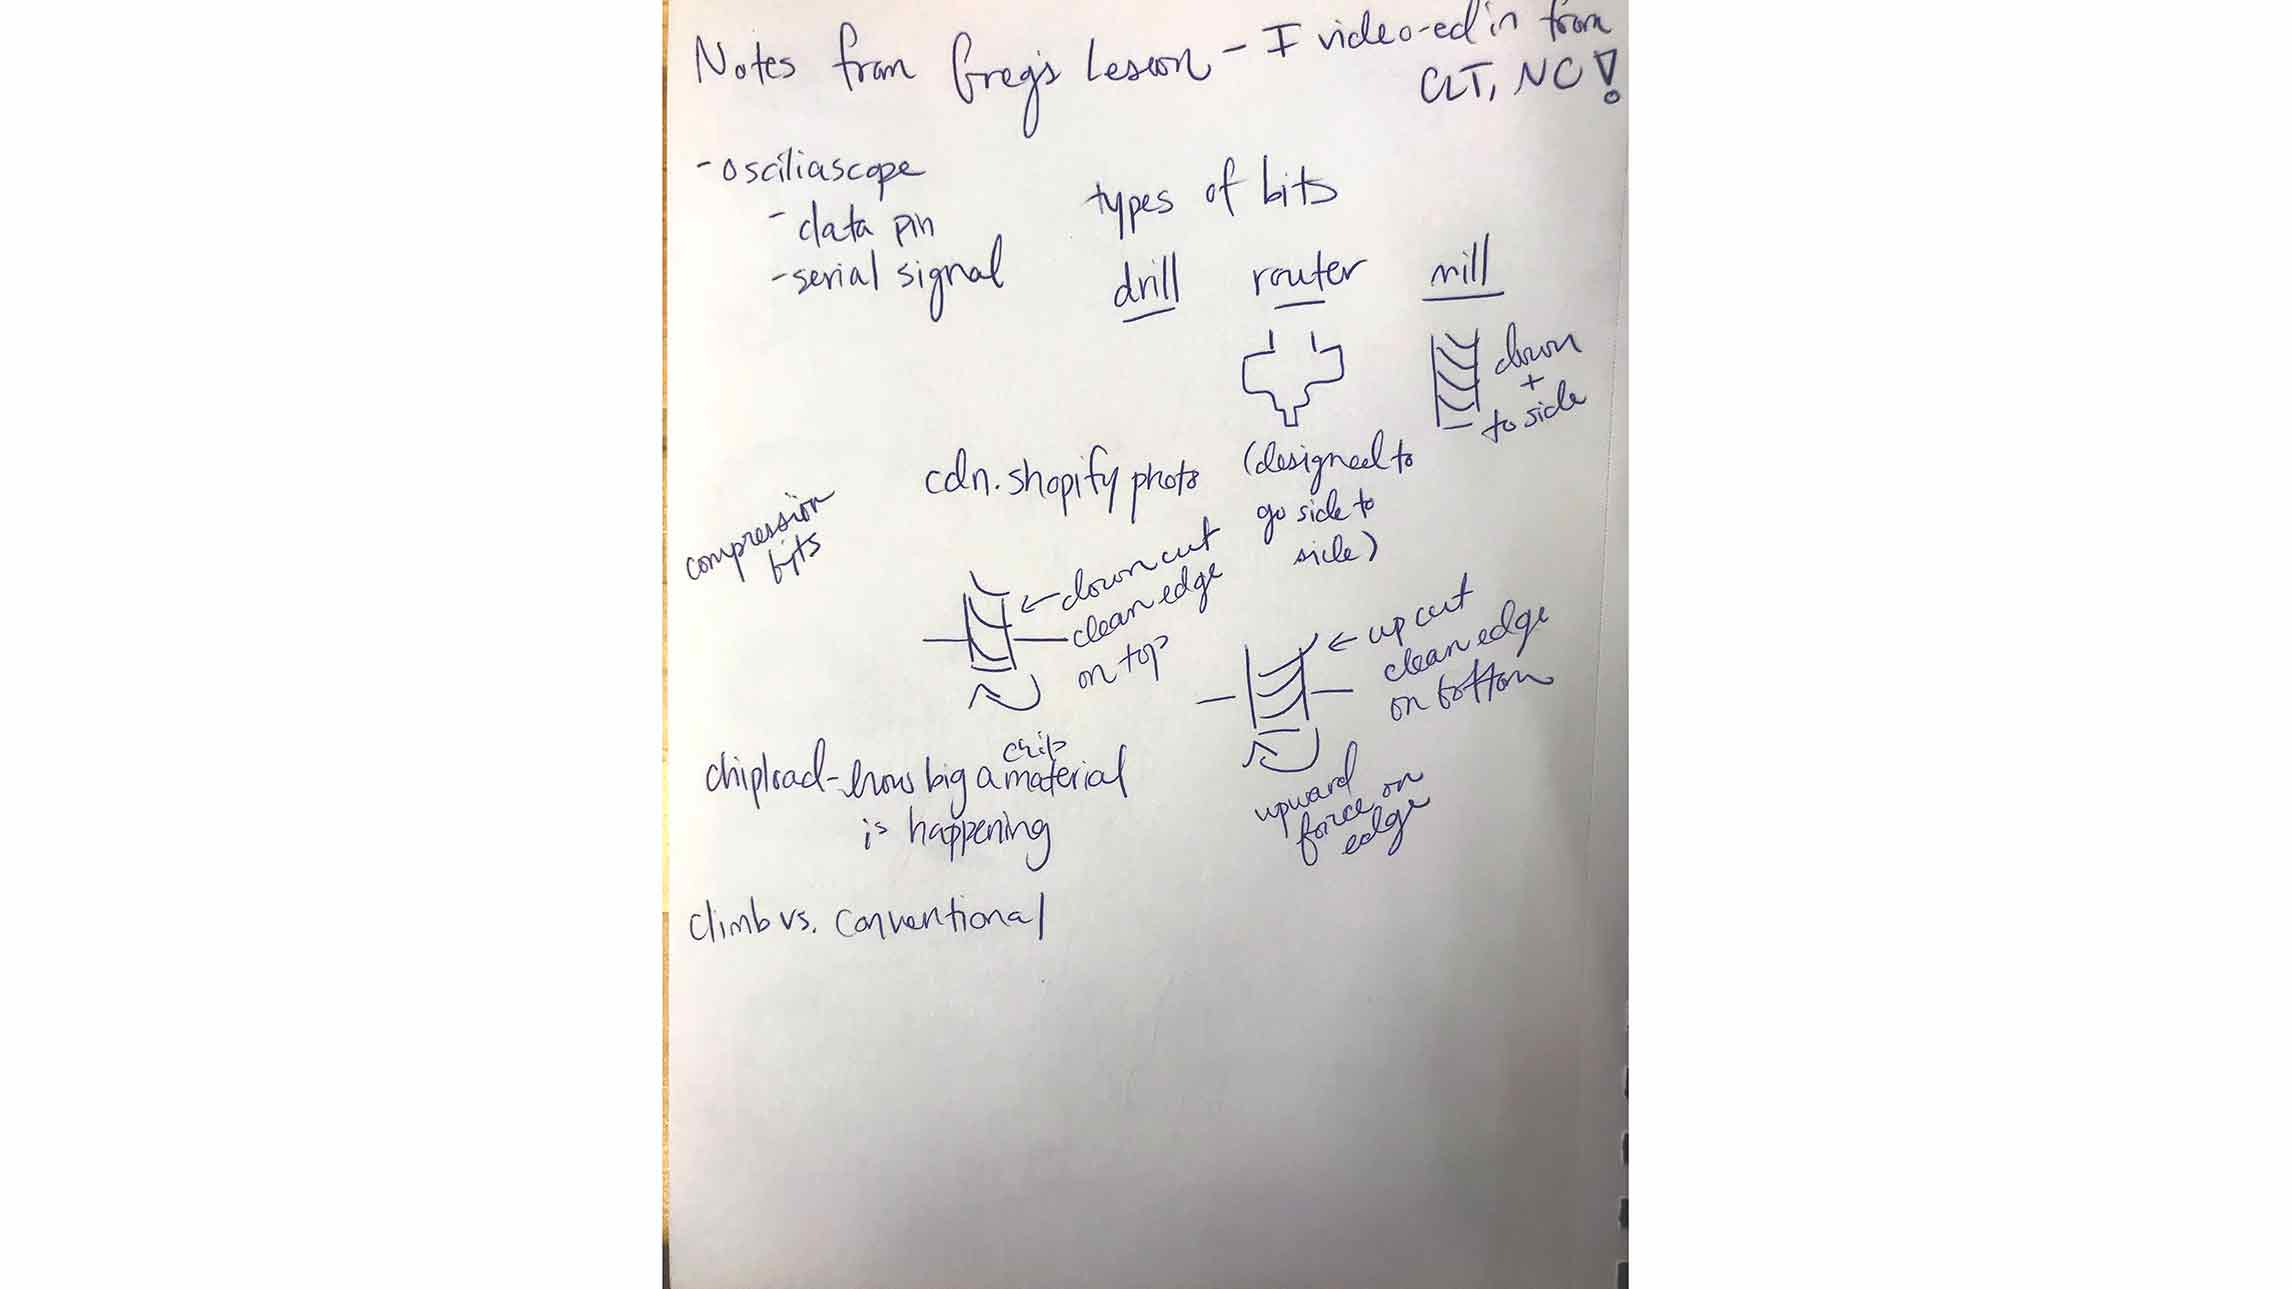 Notes from Greg's Lesson - I video-ed in from
CLT, NC!
- osciliascope
- data pin
- serial signal
types of bits
drill router mill
down
+
to side
cdn.shopify photo
(designed to
go side to
side)
compression
bits
← down cut
clean edge
on top
← up cut
clean edge
on bottom
upward
force on
edge
chip
chipload - how big a material
is happening
climb vs. conventional